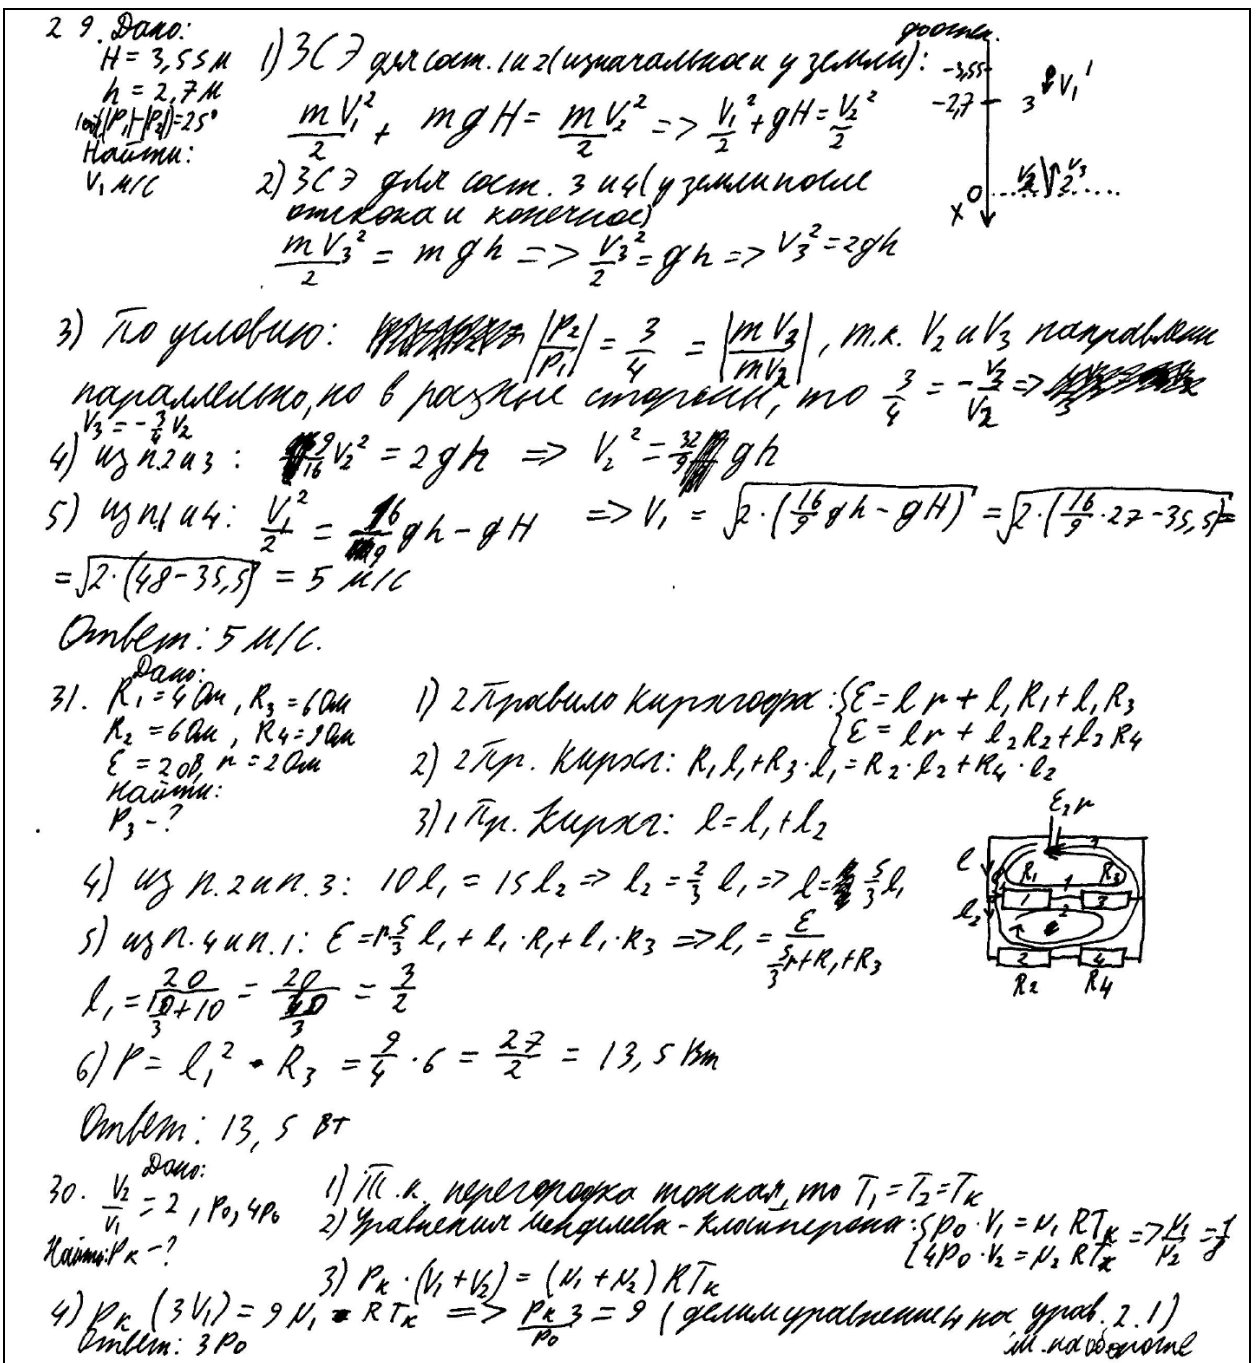 29. Дано:
H = 3,55 м
h = 2,7 м
Найти:
V₁ м/с
1) ЗСЭ для сост. 1 и 2 (изначальное и у земли):
mV₁²/2 + mgH = mV₂²/2 => V₁²/2 + gH = V₂²/2
2) ЗСЭ для сост. 3 и 4 (у земли после
отскока и конечное)
mV₃²/2 = mgh => V₃²/2 = gh => V₃² = 2gh
-3,55
-2,7
3
V₁
0
X
V₂
V₃
3) По условию: |P₂/P₁| = 3/4 = |mV₃/mV₂|, т.к. V₂ и V₃ направлены
параллельно, но в разные стороны, то 3/4 = -V₃/V₂ =>
V₃ = -3/4 V₂
4) из п.2 и 3: 9/16 V₂² = 2gh => V₂² = 32/9 gh
5) из п1 и 4: V₁²/2 = 16/9 gh - gH => V₁ = √(2·(16/9 gh - gH)) = √(2·(16/9·27 - 35,5)) =
= √(2·(48 - 35,5)) = 5 м/с
Ответ: 5 м/с.
31. Дано:
R₁ = 4 Ом, R₃ = 6 Ом
R₂ = 6 Ом, R₄ = 9 Ом
ℰ = 20В, r = 2 Ом
Найти:
P₃ - ?
1) 2 Правило Кирхгофа: {ℰ = I r + I₁R₁ + I₁R₃
{ℰ = I r + I₂R₂ + I₂R₄
2) 2 Пр. Кирхг: R₁I₁ + R₃·I₁ = R₂·I₂ + R₄·I₂
3) 1 Пр. Кирхг: I = I₁ + I₂
4) из п.2 и п.3: 10I₁ = 15I₂ => I₂ = 2/3 I₁ => I = 5/3 I₁
5) из п.4 и п.1: ℰ = r·5/3 I₁ + I₁·R₁ + I₁·R₃ => I₁ = ℰ/(5/3 r + R₁ + R₃)
I₁ = 20/(10/3 + 10) = 20/(40/3) = 3/2
6) P = I₁² · R₃ = 9/4 · 6 = 27/2 = 13,5 Вт
Ответ: 13,5 Вт
ℰ, r
I
R₁
R₃
1
1
3
I₂
2
2
4
R₂
R₄
30. Дано:
V₂/V₁ = 2, P₀, 4P₀
Найти: Pк - ?
1) Т.к. перегородка тонкая, то T₁ = T₂ = Tк
2) Уравнения Менделеева-Клапейрона: {P₀·V₁ = ν₁RTк
{4P₀·V₂ = ν₂RTк => ν₁/ν₂ = 1/8
3) Pк·(V₁+V₂) = (ν₁+ν₂)RTк
4) Pк(3V₁) = 9ν₁RTк => Pк3/P₀ = 9 (делим уравнение 4 на урав. 2.1)
Ответ: 3P₀
см. на обороте